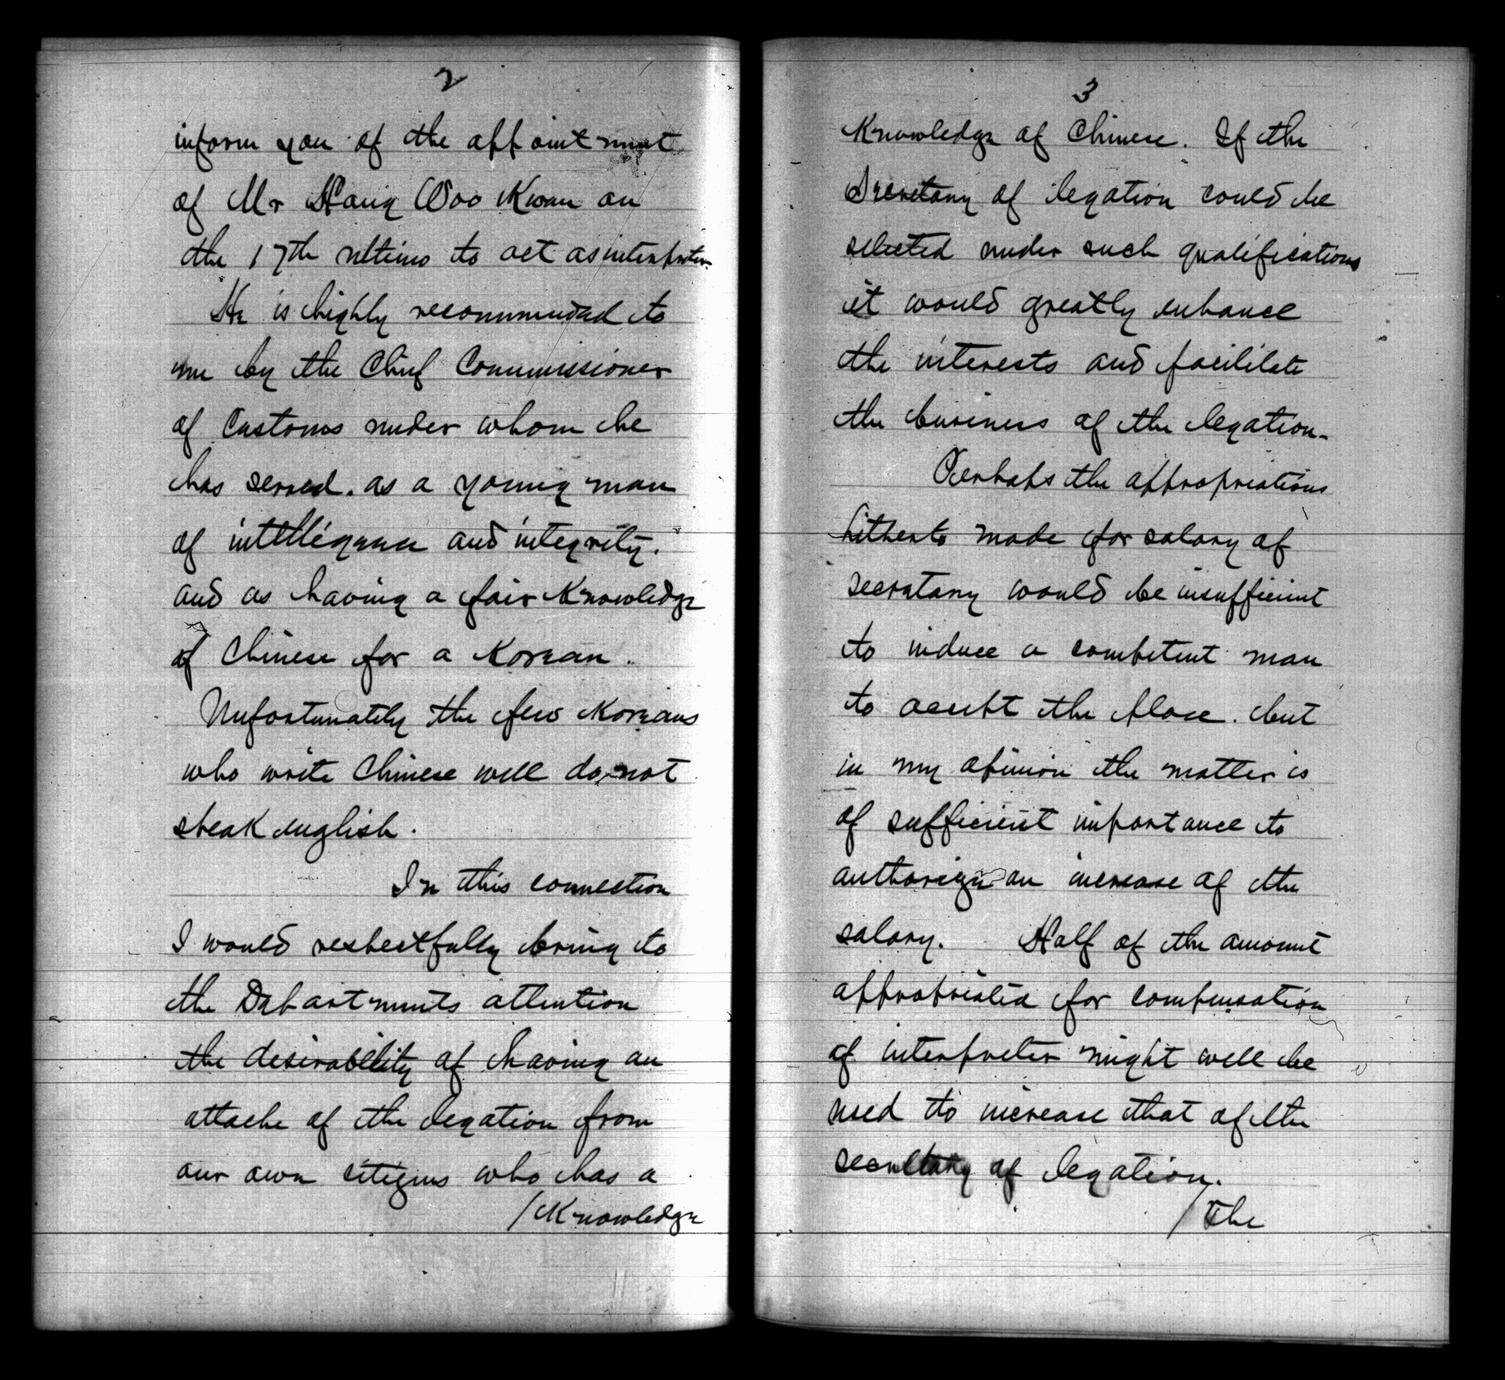 2
inform you of the appointment
of Mr Hang Woo Kwan on
the 17th ultimo to act as interpreter.
He is highly recommended to
me by the Chief Commissioner
of Customs under whom he
has served. as a young man
of intelligence and integrity.
and as having a fair Knowledge
of Chinese for a Korean.
Unfortunately the few Koreans
who write Chinese well do not
speak english.
In this connection
I would respectfully bring to
the Departments attention
the desirability of having an
attache of the legation from
our own citizens who has a
/Knowledge
3
Knowledge of Chinese. If the
Secretary of legation could be
selected under such qualifications
it would greatly enhance
the interests and facilitate
the business of the legation.
Perhaps the appropriations
hitherto made for salary of
secratary would be insufficient
to induce a competent man
to accept the place. but
in my opinion the matter is
of sufficient importance to
authorize an increase of the
salary. Half of the amount
appropriated for compensation
of interpreter might well be
used to increase that of the
secretary of legation.
/The